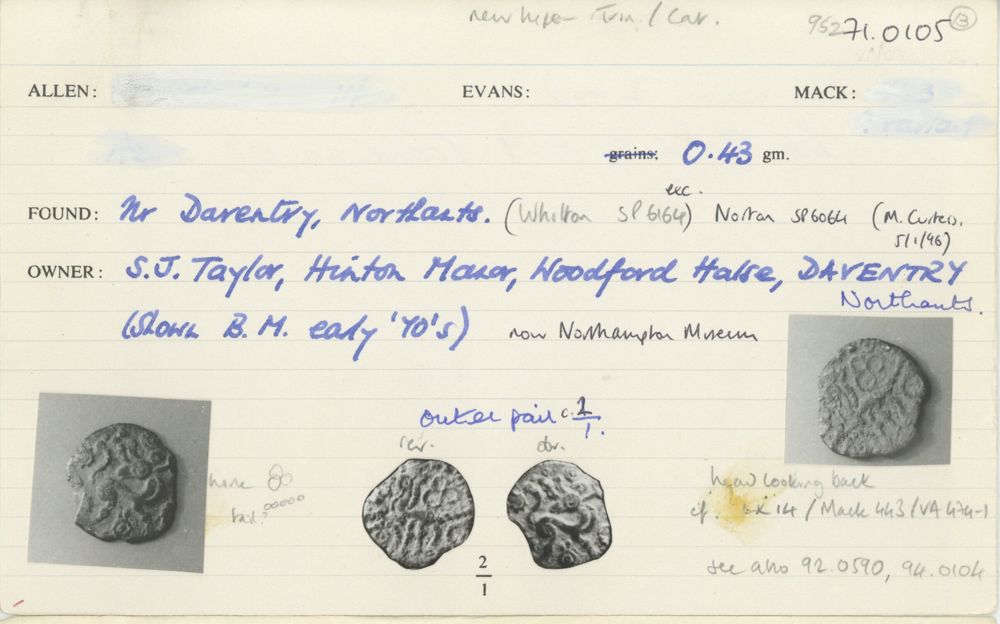 new type - Trin. / Cat.
95271.0105 13
ALLEN: EVANS: MACK:
grains: 0.43 gm.
exc.
FOUND: Nr Daventry, Northants. (Whilton SP6164) Norton SP6064 (M. Curteis.
5/1/96)
OWNER: S.J. Taylor, Hinton Manor, Woodford Halse, DAVENTRY
Northants.
(Shown B.M. early '70's) now Northampton Museum
outer pair c. 2/1.
rev. obv.
horse
tail?
head looking back
cf. LX 14 / Mack 443 / VA 474-1
2
1
see also 92.0590, 94.0104